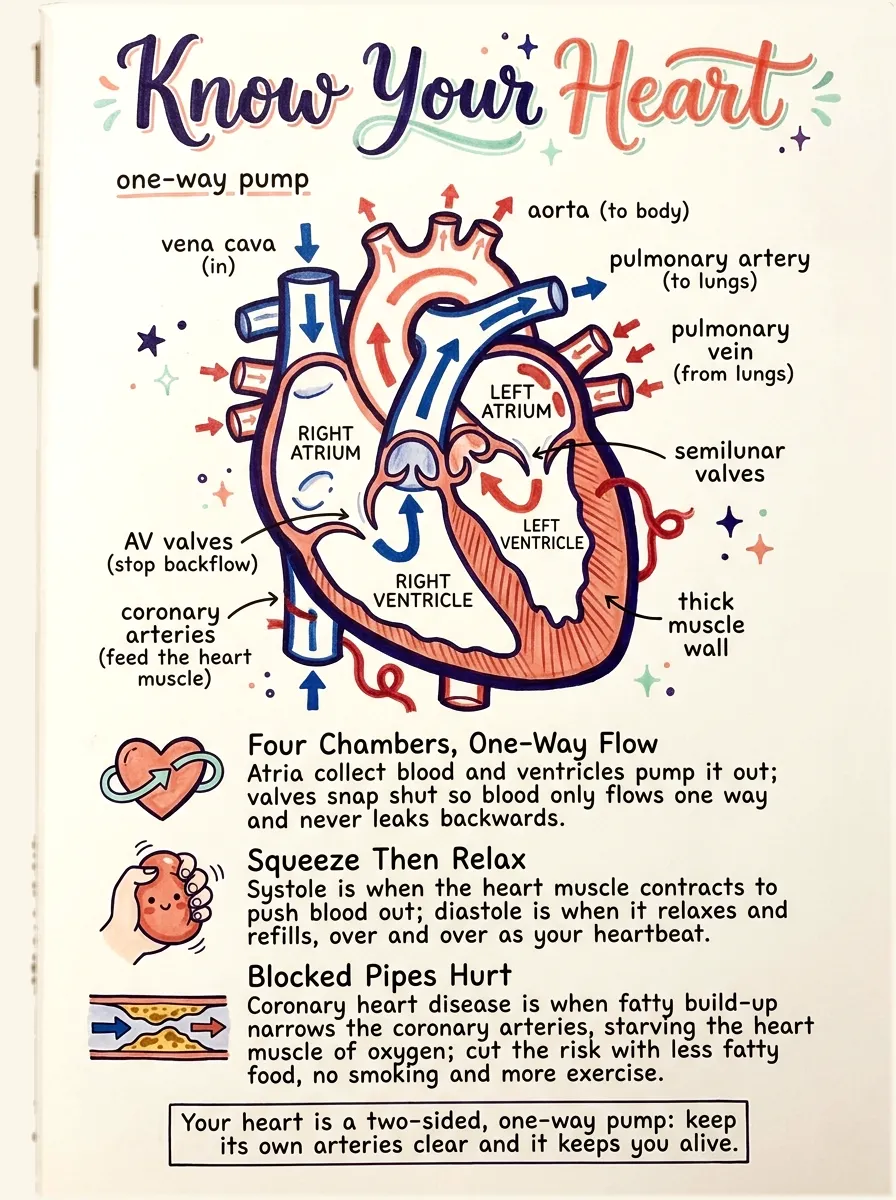 Know Your Heart
one-way pump
aorta (to body)
vena cava
(in)
pulmonary artery
(to lungs)
pulmonary
vein
(from lungs)
LEFT
ATRIUM
RIGHT
ATRIUM
semilunar
valves
AV valves
(stop backflow)
LEFT
VENTRICLE
RIGHT
VENTRICLE
coronary
arteries
(feed the heart
muscle)
thick
muscle
wall
Four Chambers, One-Way Flow
Atria collect blood and ventricles pump it out;
valves snap shut so blood only flows one way
and never leaks backwards.
Squeeze Then Relax
Systole is when the heart muscle contracts to
push blood out; diastole is when it relaxes and
refills, over and over as your heartbeat.
Blocked Pipes Hurt
Coronary heart disease is when fatty build-up
narrows the coronary arteries, starving the heart
muscle of oxygen; cut the risk with less fatty
food, no smoking and more exercise.
Your heart is a two-sided, one-way pump: keep
its own arteries clear and it keeps you alive.